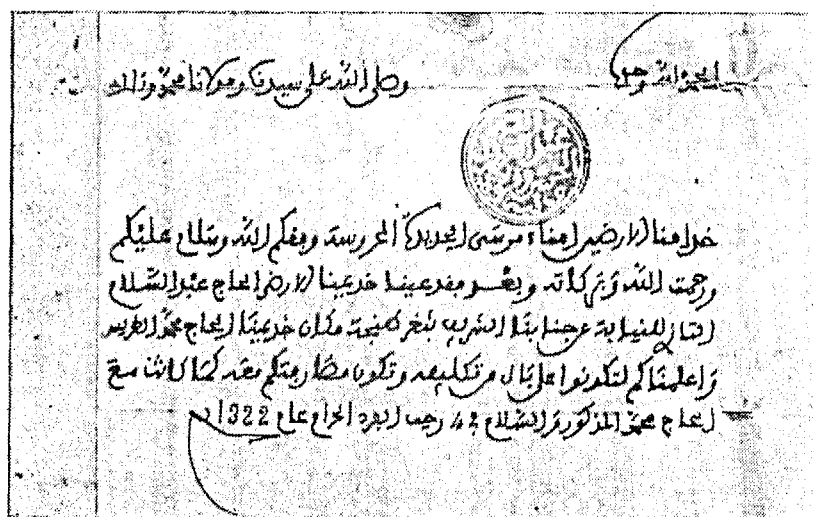 الحمد لله وحده
وصلى الله على سيدنا ومولانا محمد وءاله
خدامنا الارضين امناء مرسى الجديدة المحروسة وفقكم الله وسلام عليكم
ورحمت الله وبركاته وبعد فقد عينا خديمنا الارضى الحاج عبد السلام
التازي للنيابة عن جنابنا الشريف بثغر طنجة مكان خديمنا الحاج محمد الطريس
واعلمناكم لتكونوا على بال من تكليفه وتكون مفاوضتكم معه كما كانت مع
الحاج محمد المذكور والسلام في رجب الفرد الحرام عام 1322